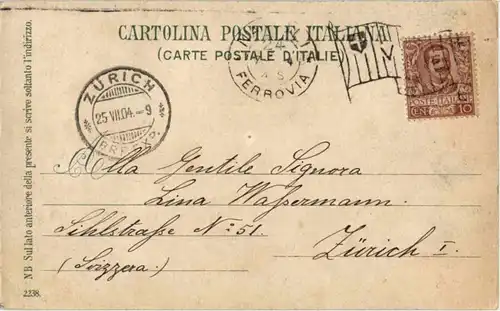 CARTOLINA POSTALE ITALIANA
(CARTE POSTALE D'ITALIE)
FERROVIA
POSTE ITALIANE
CENT 10
ZÜRICH
25.VII.04.–9
BRF.EXP.
Alla Gentile Signora
Lina Waßermann.
Sihlstraße N:o 51.
Zürich I.
(Svizzera.)
N.B. Sul lato anteriore della presente si scrive soltanto l'indirizzo.
2238.